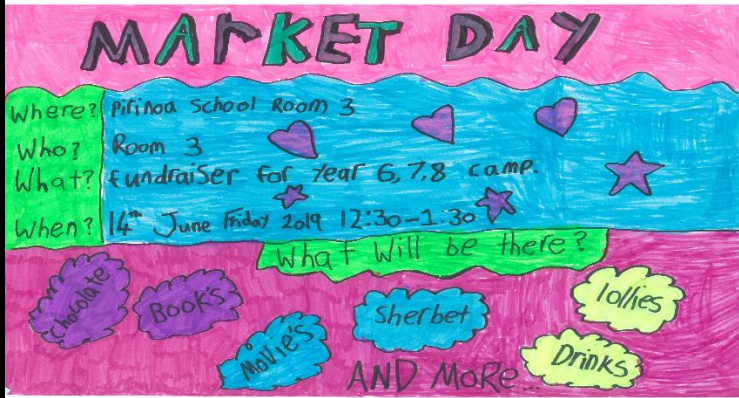 MARKET DAY
Where? Pirinoa School Room 3
Who? Room 3
What? fundraiser for Year 6, 7, 8 camp.
When? 14th June Friday 2019 12:30-1:30
What will be there?
Chocolate
Book's
Movie's
Sherbet
lollies
Drinks
AND MoRe...